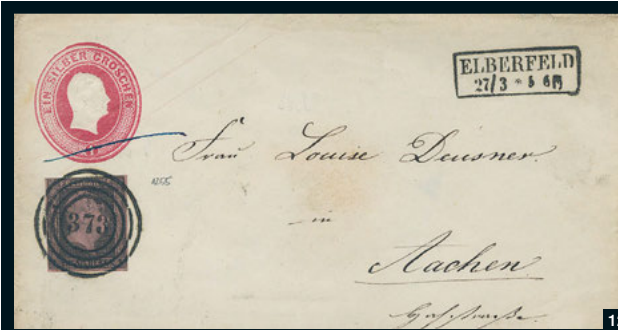 EIN SILBER GROSCHEN
ELBERFELD
27/3 * 5 6
Frau Louise Deusner.
1255
in
373
Aachen